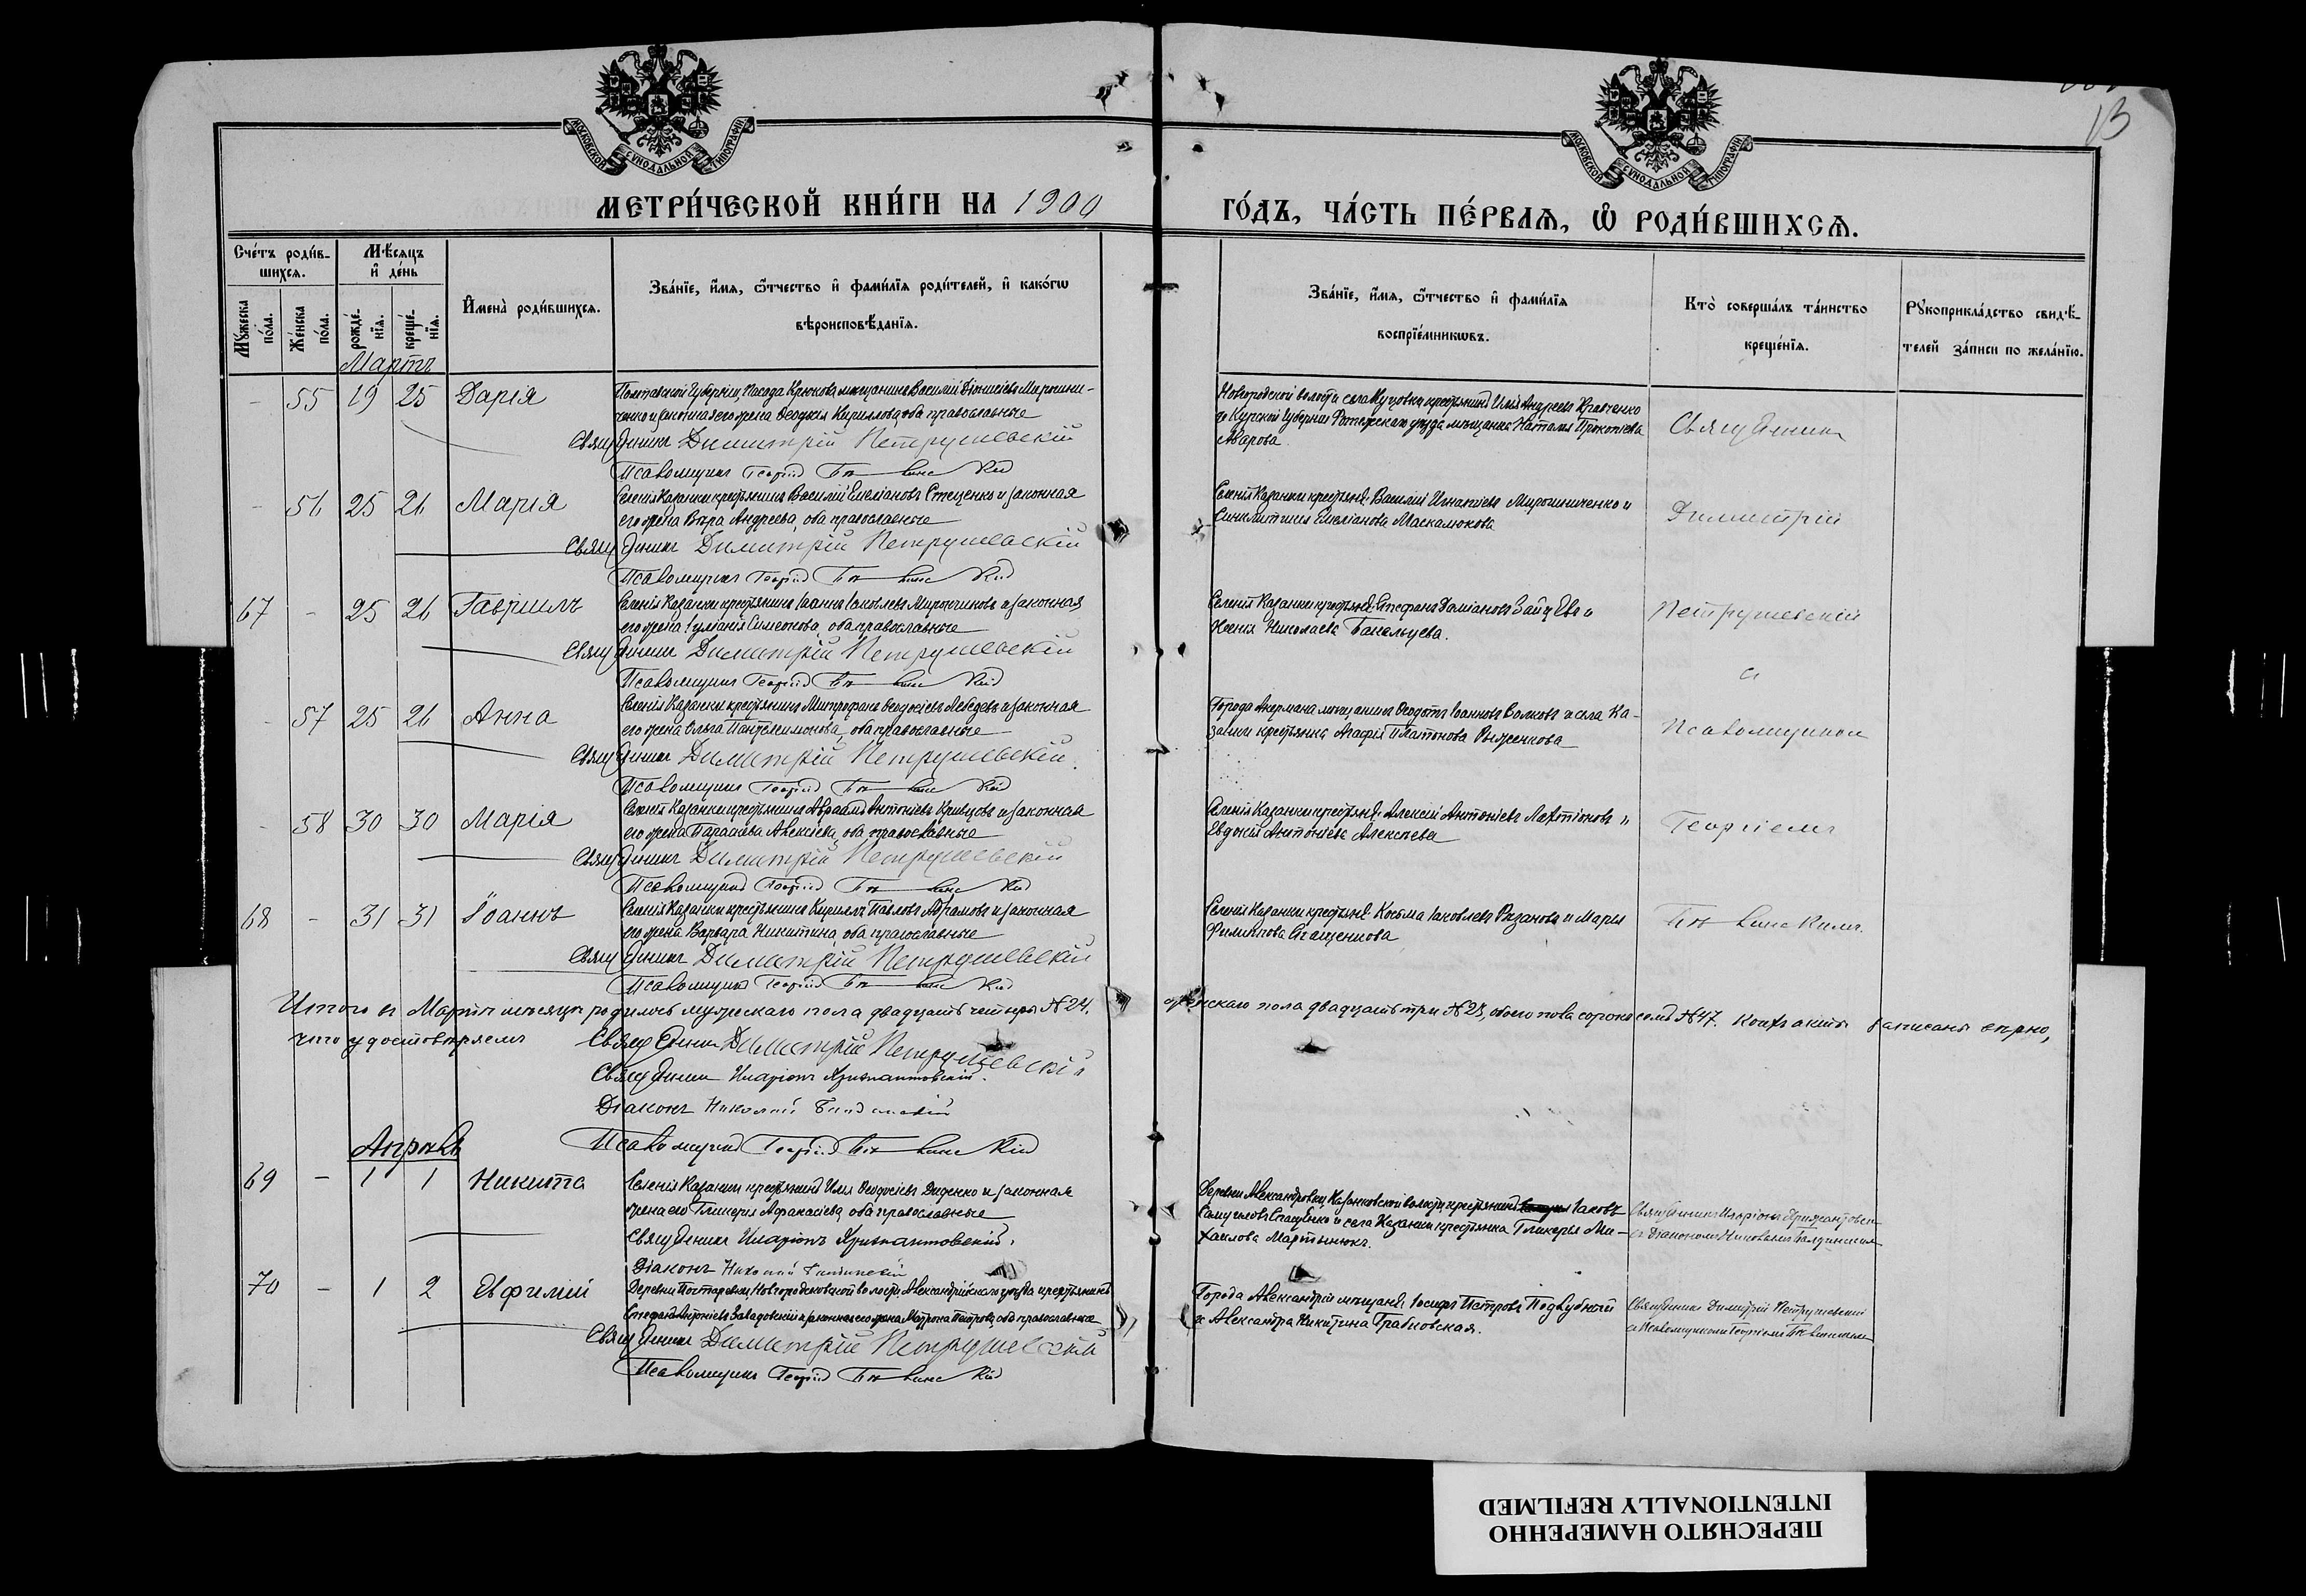 13
МОСКОВСКОЙ СѴНОДАЛЬНОЙ ТИПОГРАФІИ
МОСКОВСКОЙ СѴНОДАЛЬНОЙ ТИПОГРАФІИ
МЕТРИ́ЧЕСКОЙ КНИ́ГИ НА 1900
ГО́ДЪ, ЧА́СТЬ ПЕ́РВАѦ, Ѡ҆ РОДИ́ВШИХСѦ.
Сче́тъ роди́в-
шихсѧ.
Мѣ́сѧцъ
и҆ де́нь
Мꙋ́жеска по́ла.
Же́нска по́ла.
рожде́-
нїѧ.
креще́-
нїѧ.
И҆мена̀ роди́вшихсѧ.
Зва́нїе, и҆́мѧ, ѻ҆́тчество и҆ фами́лїѧ роди́телей, и҆ како́гѡ
вѣроисповѣ́данїѧ.
Зва́нїе, и҆́мѧ, ѻ҆́тчество и҆ фами́лїѧ
воспрїе́мникѡвъ.
Кто̀ соверша́лъ та́инство
креще́нїѧ.
Рꙋкоприкла́дство свидѣ́-
телей за́писи по жела́нїю.
Мартъ
- 55 19 25 Дарія
Полтавской Губерніи, Посада Крюкова мѣщанинъ Василій Діонисіевъ Мирошни-
ченко и законная его жена Ѳеодосія Кириллова, оба православные
Священникъ Димитрій Петрушевскій
Псаломщикъ Георгій
крестьянинъ Илія Андреевъ Кравченко
и Курской Губерніи уѣзда мѣщанка Наталія Прокопіева
Священникъ
- 56 25 26 Марія
Селенія Казанки крестьянинъ Василій Емеліановъ Стеценко и законная
его жена Вѣра Андреева, оба православные
Священникъ Димитрій Петрушевскій
Псаломщикъ Георгій
Селенія Казанки крестьяне: Василій Игнатіевъ Мирошниченко и
Синклитикія Емеліанова Маскалюкова
Димитрій
67 - 25 26 Гавріилъ
Селенія Казанки крестьянинъ Іоаннъ Іаковлевъ и законная
его жена Іуліанія Симеонова, оба православные
Священникъ Димитрій Петрушевскій
Псаломщикъ Георгій
Селенія Казанки крестьяне: Стефанъ Даміановъ Зайцевъ и
Ксенія Николаева
Петрушевскій
съ
- 57 25 26 Анна
Селенія Казанки крестьянинъ Митрофанъ Ѳеодосіевъ Лебедевъ и законная
его жена Ольга Пантелеимонова, оба православные
Священникъ Димитрій Петрушевскій
Псаломщикъ Георгій
Города Акермана мѣщанинъ Ѳеодотъ Іоанновъ Волковъ и села Ка-
занки крестьянка Агафія Платонова Рыженкова
Псаломщикомъ
- 58 30 30 Марія
Селенія Казанки крестьянинъ Авраамъ Антоніевъ Кривцовъ и законная
его жена Параскева Алексіева, оба православные
Священникъ Димитрій Петрушевскій
Псаломщикъ Георгій
Селенія Казанки крестьяне: Алексій Антоніевъ и
Евдокія Антоніева Алексѣева
Георгіемъ
68 - 31 31 Іоаннъ
Селенія Казанки крестьянинъ Кириллъ Павловъ Абрамовъ и законная
его жена Варвара Никитина, оба православные
Священникъ Димитрій Петрушевскій
Псаломщикъ Георгій
Селенія Казанки крестьяне: Косьма Іаковлевъ Рязановъ и Марія
Филиппова Стащенкова
Итого въ Мартѣ мѣсяцѣ родилось мужескаго пола двадцать четыре № 24, женскаго пола двадцать три № 23, обоего пола сорокъ семь № 47. Коихъ акты записаны вѣрно,
что удостовѣряемъ
Священникъ Димитрій Петрушевскій
Священникъ Иларіонъ Хрисантовскій
Діаконъ Николай
Псаломщикъ Георгій
Апрѣль
69 - 1 1 Никита
Селенія Казанки крестьянинъ Илія Ѳеодосіевъ Диденко и законная
жена его Гликерія Аѳанасіева, оба православные
Священникъ Иларіонъ Хрисантовскій
Діаконъ Николай
Деревни Александровки, Казанковской волости крестьянинъ Іаковъ
Самуиловъ Стаценко и села Казанки крестьянка Гликерія Ми-
хаилова Мартынюкъ.
Священникъ Иларіонъ Хрисантовскій
съ Діакономъ Николаемъ
70 - 1 2 Евфимій
Деревни волости, Александрійскаго уѣзда крестьянинъ
Стефанъ Антоніевъ Завадовскій и законная его жена Матрона Петрова, оба православные
Священникъ Димитрій Петрушевскій
Псаломщикъ Георгій
Города Александріи мѣщане: Іосифъ Петровъ Поддубный
и Александра Никитина Грабковская.
Священникъ Димитрій Петрушевскій
съ Псаломщикомъ Георгіемъ
ПЕРЕСНЯТО НАМЕРЕННО
INTENTIONALLY REFILMED